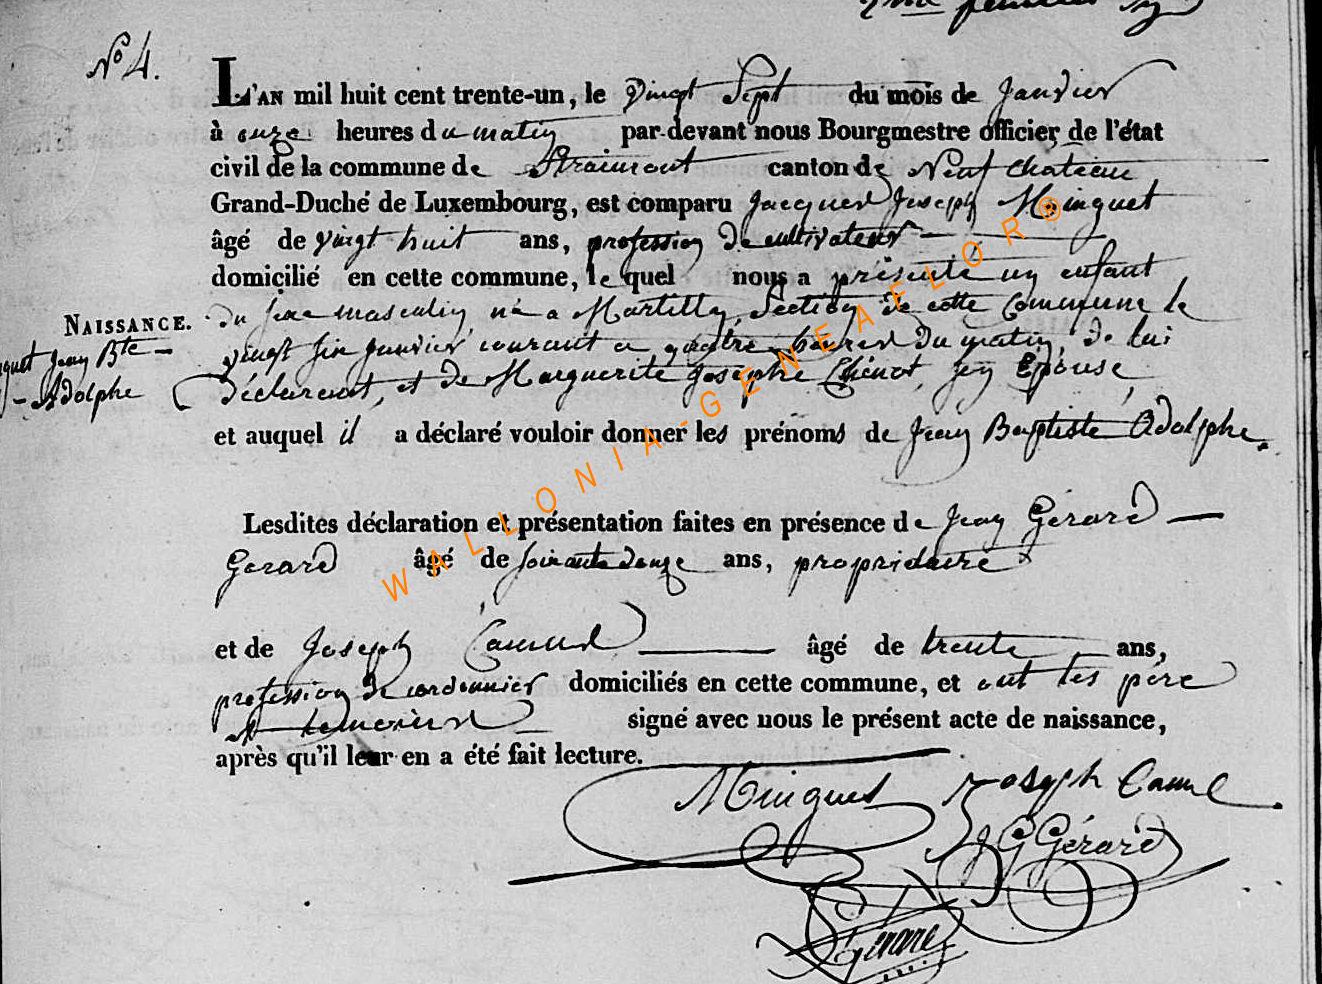 2me feuillet
No 4.
L'AN mil huit cent trente-un, le vingt Sept du mois de Janvier
à onze heures du matin par-devant nous Bourgmestre officier de l'état
civil de la commune de Straimont canton de Neufchateau
Grand-Duché de Luxembourg, est comparu Jacques Joseph Minguet
âgé de vingt huit ans, profession de cultivateur
domicilié en cette commune, lequel nous a présenté un enfant
NAISSANCE. du sexe masculin, né a Martilly, Section de cette Commune le
guet Jean Bte vingt six Janvier courant a quatre heures du matin, de lui
Adolphe déclarant, et de Marguerite Josephe Chenot, son Epouse,
et auquel il a déclaré vouloir donner les prénoms de Jean Baptiste Adolphe.
Lesdites déclaration et présentation faites en présence de Jean Gérard
Gerard âgé de soixante douze ans, propriétaire
et de Joseph Camul âgé de trente ans,
profession de cordonnier domiciliés en cette commune, et ont les père
et temoins signé avec nous le présent acte de naissance,
après qu'il leur en a été fait lecture.
Minguet Joseph Camul
J G Gérard
Gérard
WALLONIA-GENEAFLOR®